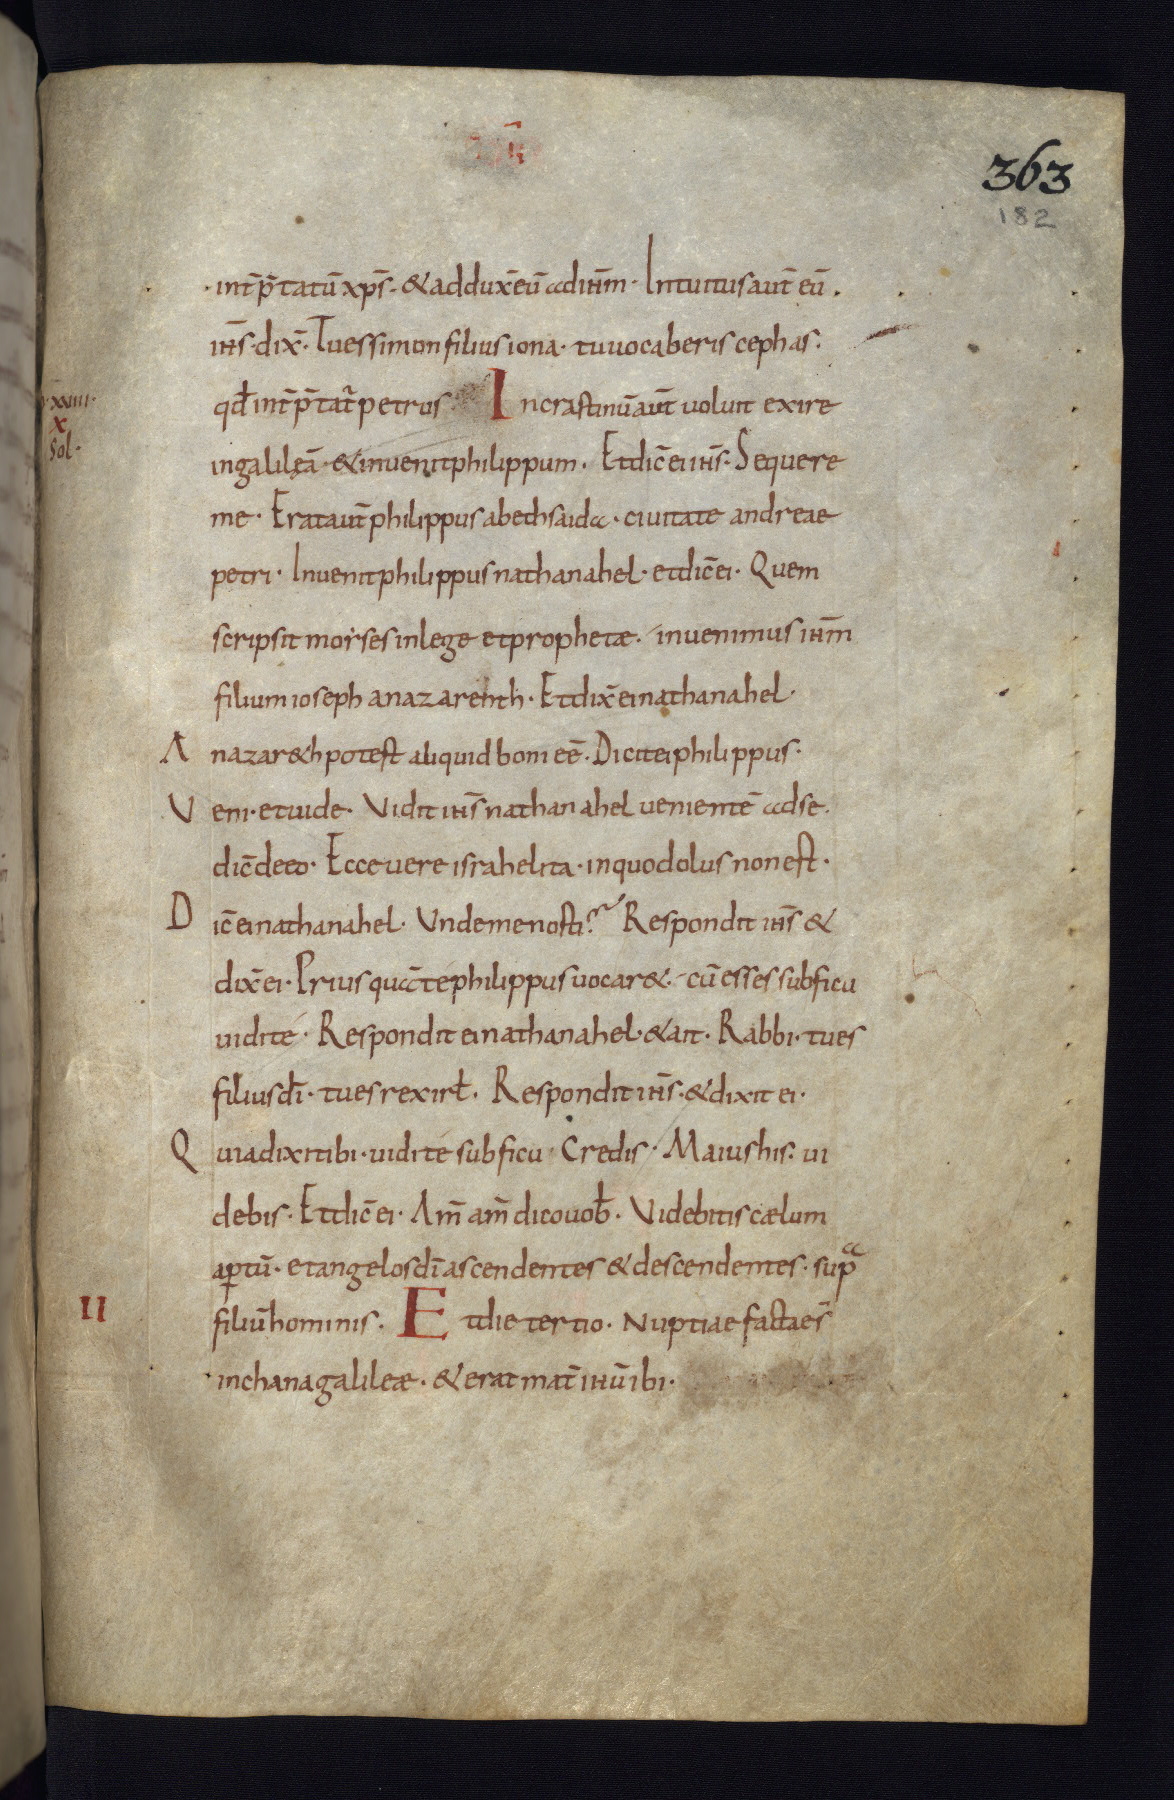 363
182
int̄p̄tatū xp̄s · & addux̄ eū ad ih̄m · Intuitus aut̄ eū ·
ih̄s · dix̄ · Tu es simon filius iona · tu vocaberis cephas ·
qđ int̄p̄tat̄ petrus In crastinū aut̄ voluit exire
xxiiii ·
x
Sol ·
in galileā · & invenit philippum · Et dic̄ ei ih̄s · Sequere
me · Erat aut̄ philippus a bethsaida · civitate andreae
petri · Invenit philippus nathanahel · et dic̄ ei · Quem
scripsit moises in lege et prophetæ · invenimus ih̄m
filium ioseph a nazareth · Et dix̄ ei nathanahel ·
A nazar&h potest aliquid boni eē · Dicit ei philippus ·
Veni · et vide · Vidit ih̄s nathanahel venientē ad se ·
dic̄ de eo · Ecce vere israhelita · in quo dolus non est ·
Dic̄ ei nathanahel · Unde me nosti? Respondit ih̄s &
dix̄ ei · Prius quā te philippus vocar& · cū esses sub ficu
vidi te · Respondit ei nathanahel · & ait · Rabbi · tu es
filius dī · tu es rex isrł · Respondit ih̄s · & dixit ei ·
Quia dixi tibi · vidi te sub ficu · Credis · Maius his · vi
debis · Et dic̄ ei · Am̄ am̄ dico vob̄ · Videbitis cælum
aꝑtū · et angelos dī ascendentes & descendentes · sup̄a
II
filiū hominis · Et die tertio · Nuptiae factae s̄
in chana galileæ · & erat mat̄ ih̄u ibi ·